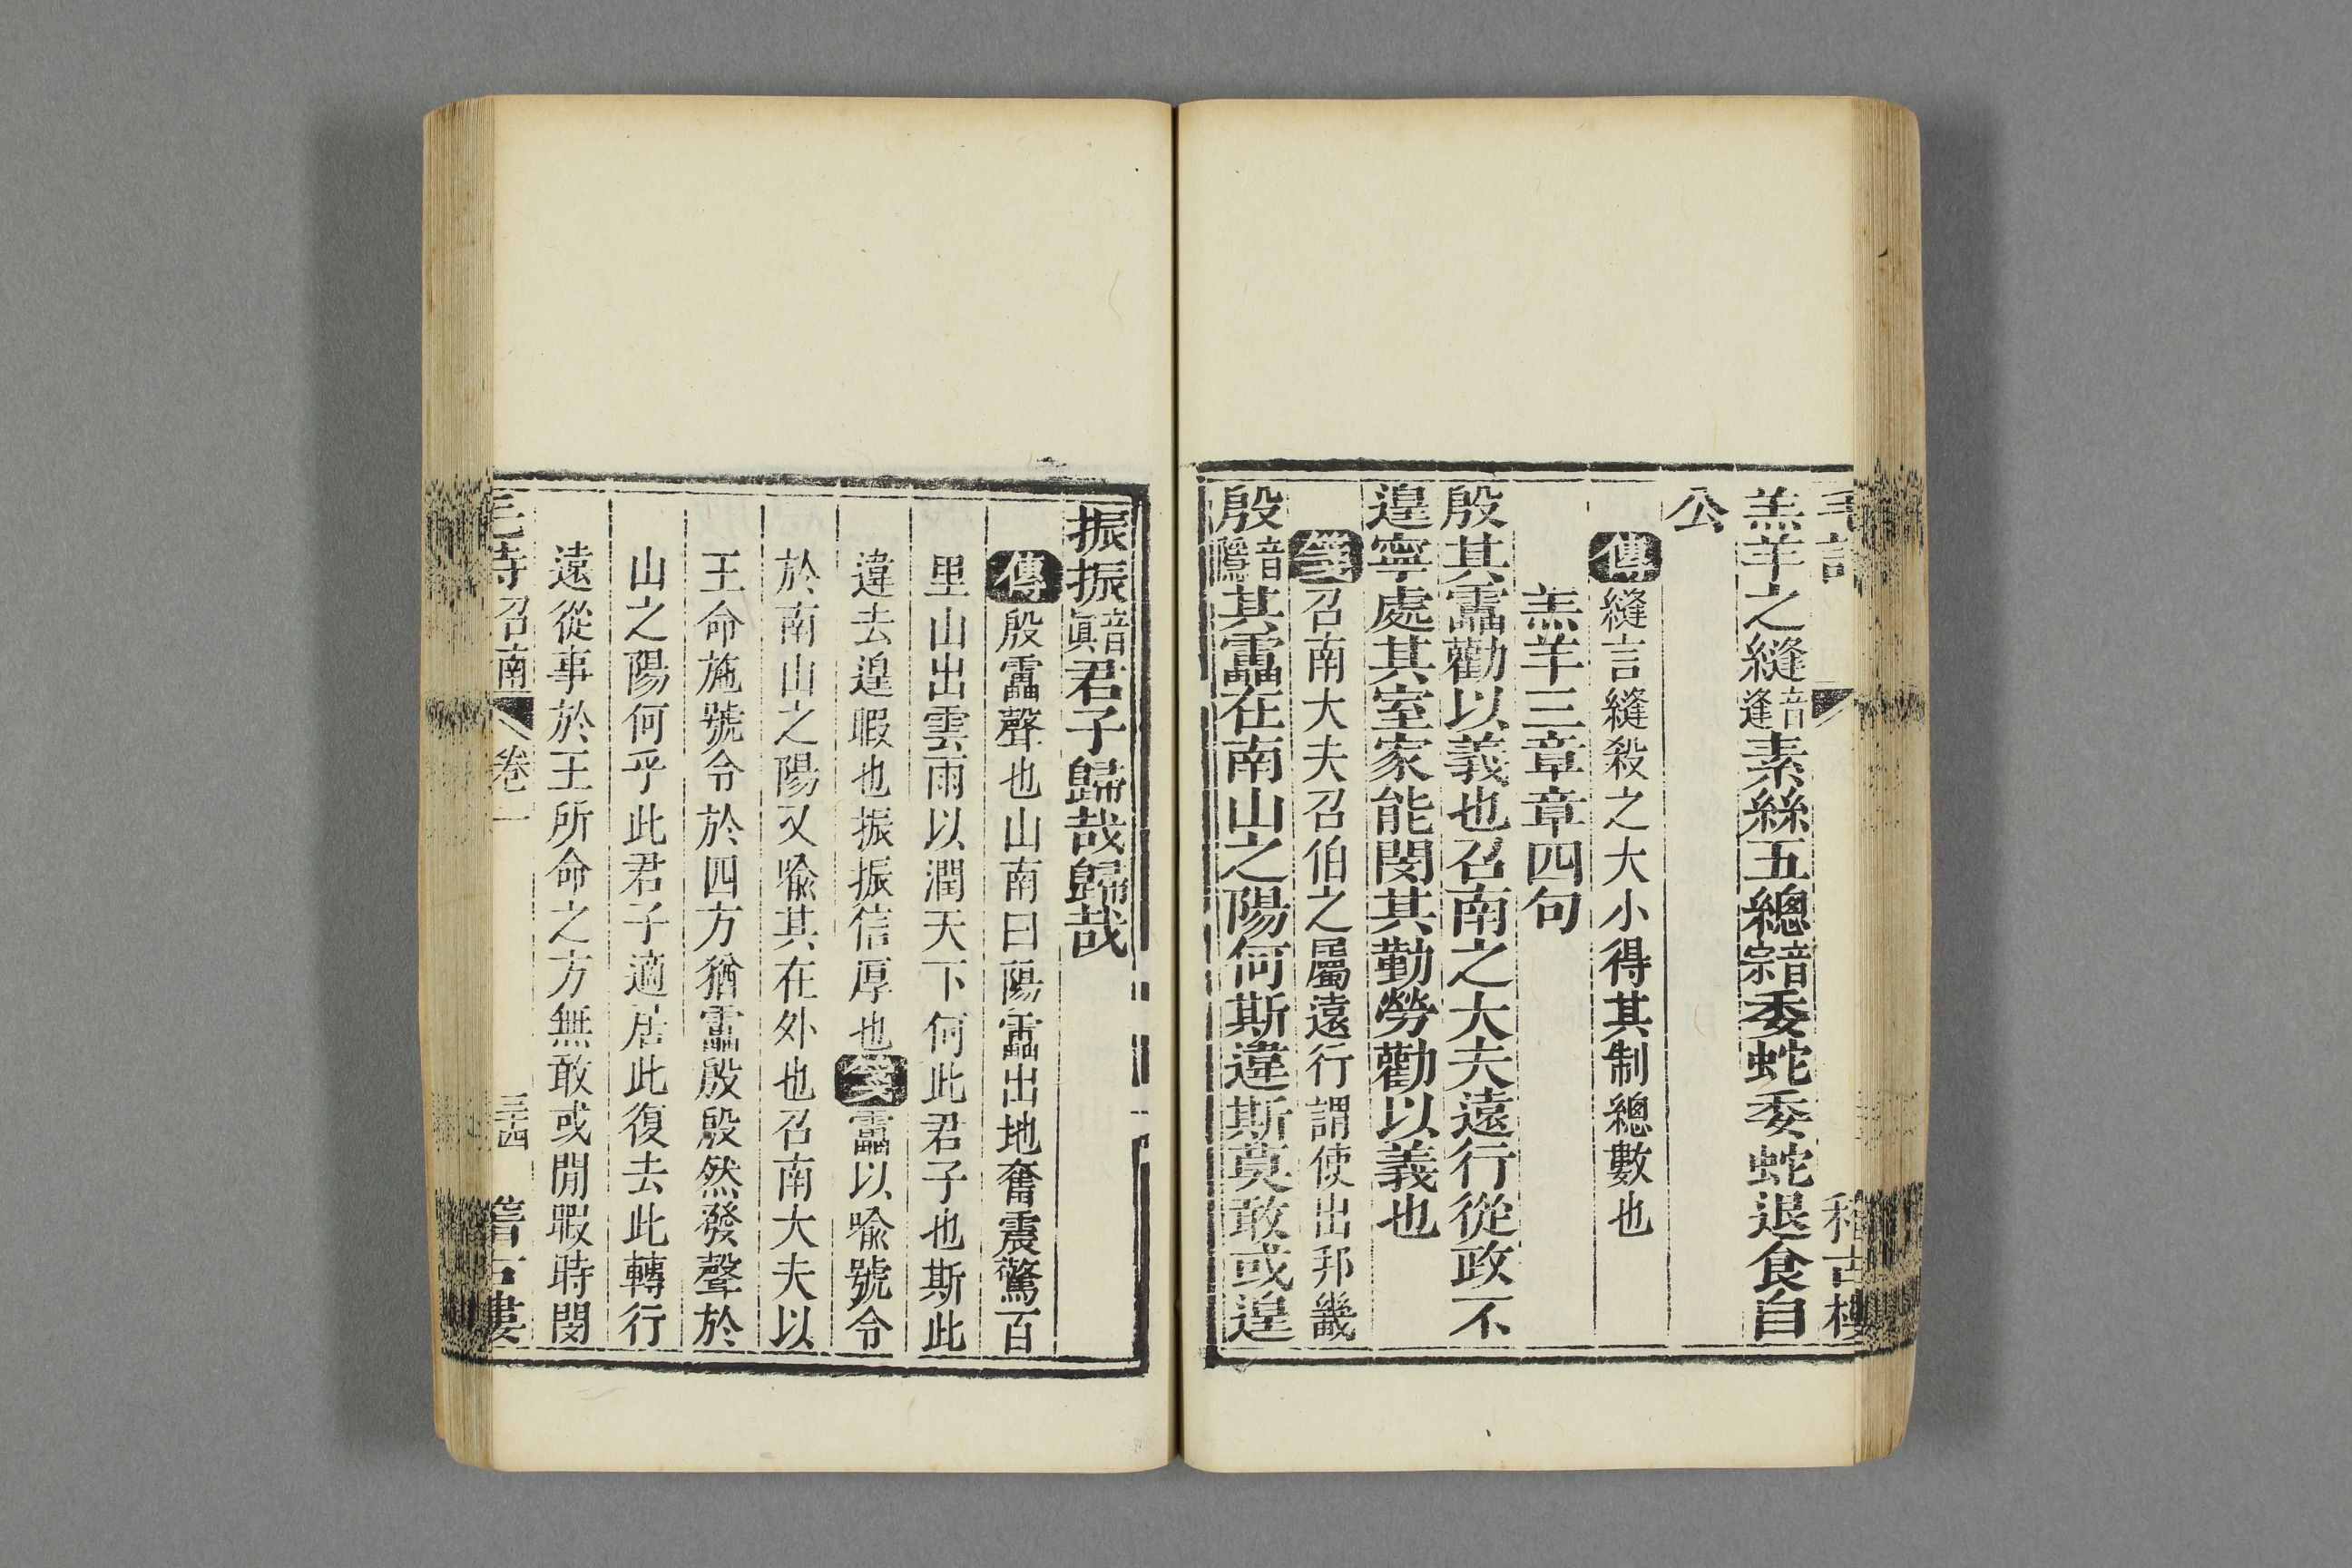 羔羊之縫音逢素絲五總音宗委蛇委蛇退食自
公
傳縫言縫殺之大小得其制總數也
羔羊三章章四句
殷其靁勸以義也召南之大夫遠行從政不
遑寧處其室家能閔其勤勞勸以義也
箋召南大夫召伯之屬遠行謂使出邦畿
殷音隱其靁在南山之陽何斯違斯莫敢或遑
振振音眞君子歸哉歸哉
傳殷靁聲也山南曰陽靁出地奮震驚百
里山出雲雨以潤天下何此君子也斯此
違去遑暇也振振信厚也箋靁以喻號令
於南山之陽又喻其在外也召南大夫以
王命施號令於四方猶靁殷殷然發聲於
山之陽何乎此君子適居此復去此轉行
遠從事於王所命之方無敢或閒暇時閔
毛詩召南 卷一 三十四